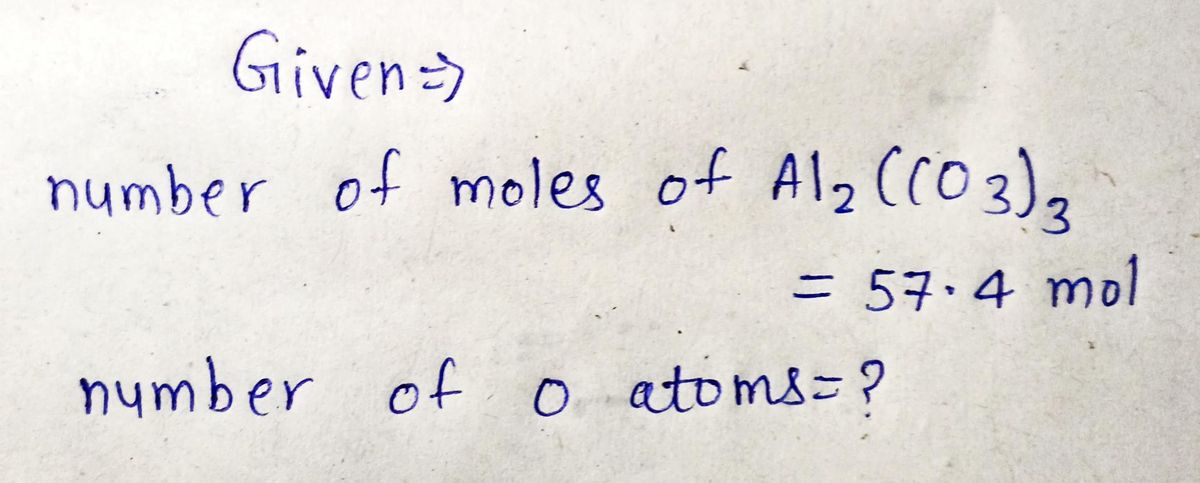 Given⇒
number of moles of Al₂(CO₃)₃
= 57.4 mol
number of o atoms=?